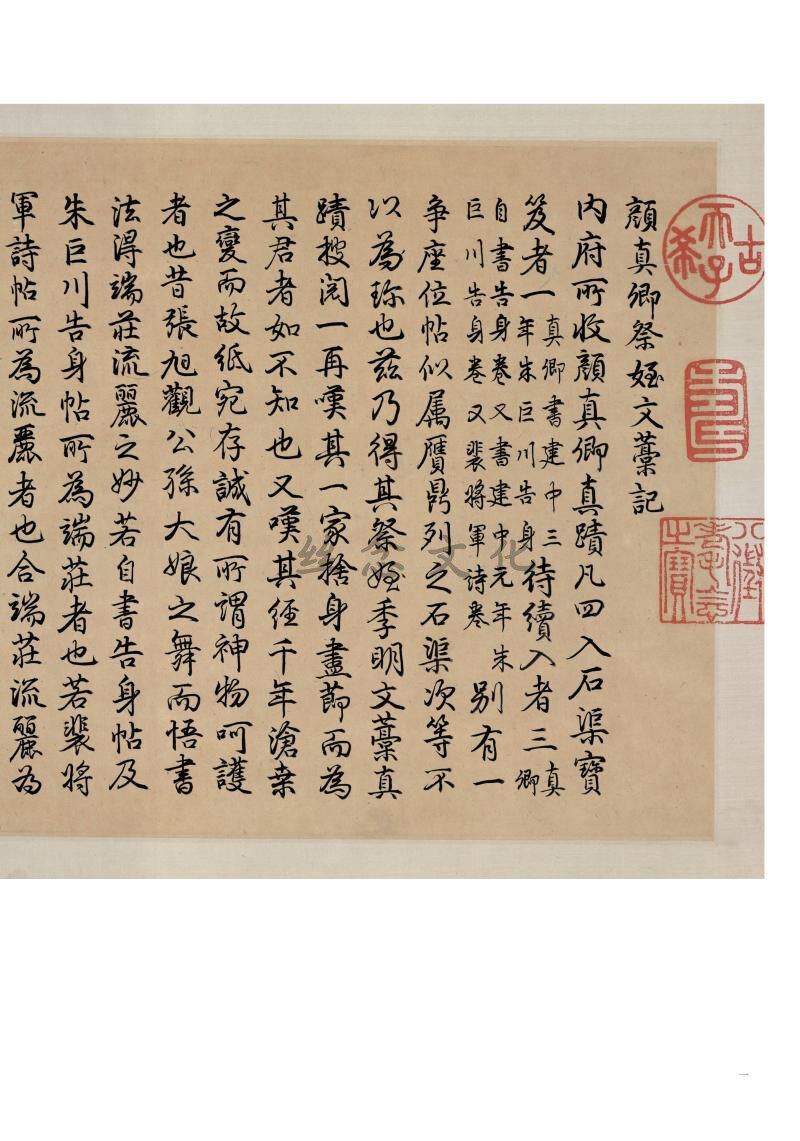 古希天子
壽
八徵耄念之寶
顔真卿祭姪文藁記
內府所收顔真卿真蹟凡四入石渠寶
笈者一真卿書建中三年朱巨川告身待續入者三真卿
自書告身卷又書建中元年朱巨川告身卷又裴將軍詩卷別有一
爭座位帖似属贋鼎列之石渠次等不
以為珍也兹乃得其祭姪季明文藁真
蹟搜閱一再嘆其一家捨身盡莭而為
其君者如不知也又嘆其经千年滄桒
之變而故紙宛存誠有所謂神物呵護
者也昔張旭觀公孫大娘之舞而悟書
法淂端莊流麗之妙若自書告身帖及
朱巨川告身帖所為端莊者也若裴將
軍詩帖所為流麗者也合端莊流麗為
文化
一